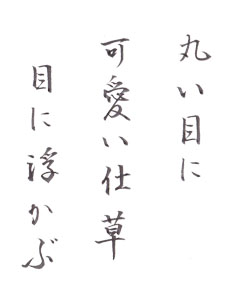 丸い目に
可愛い仕草
目に浮かぶ